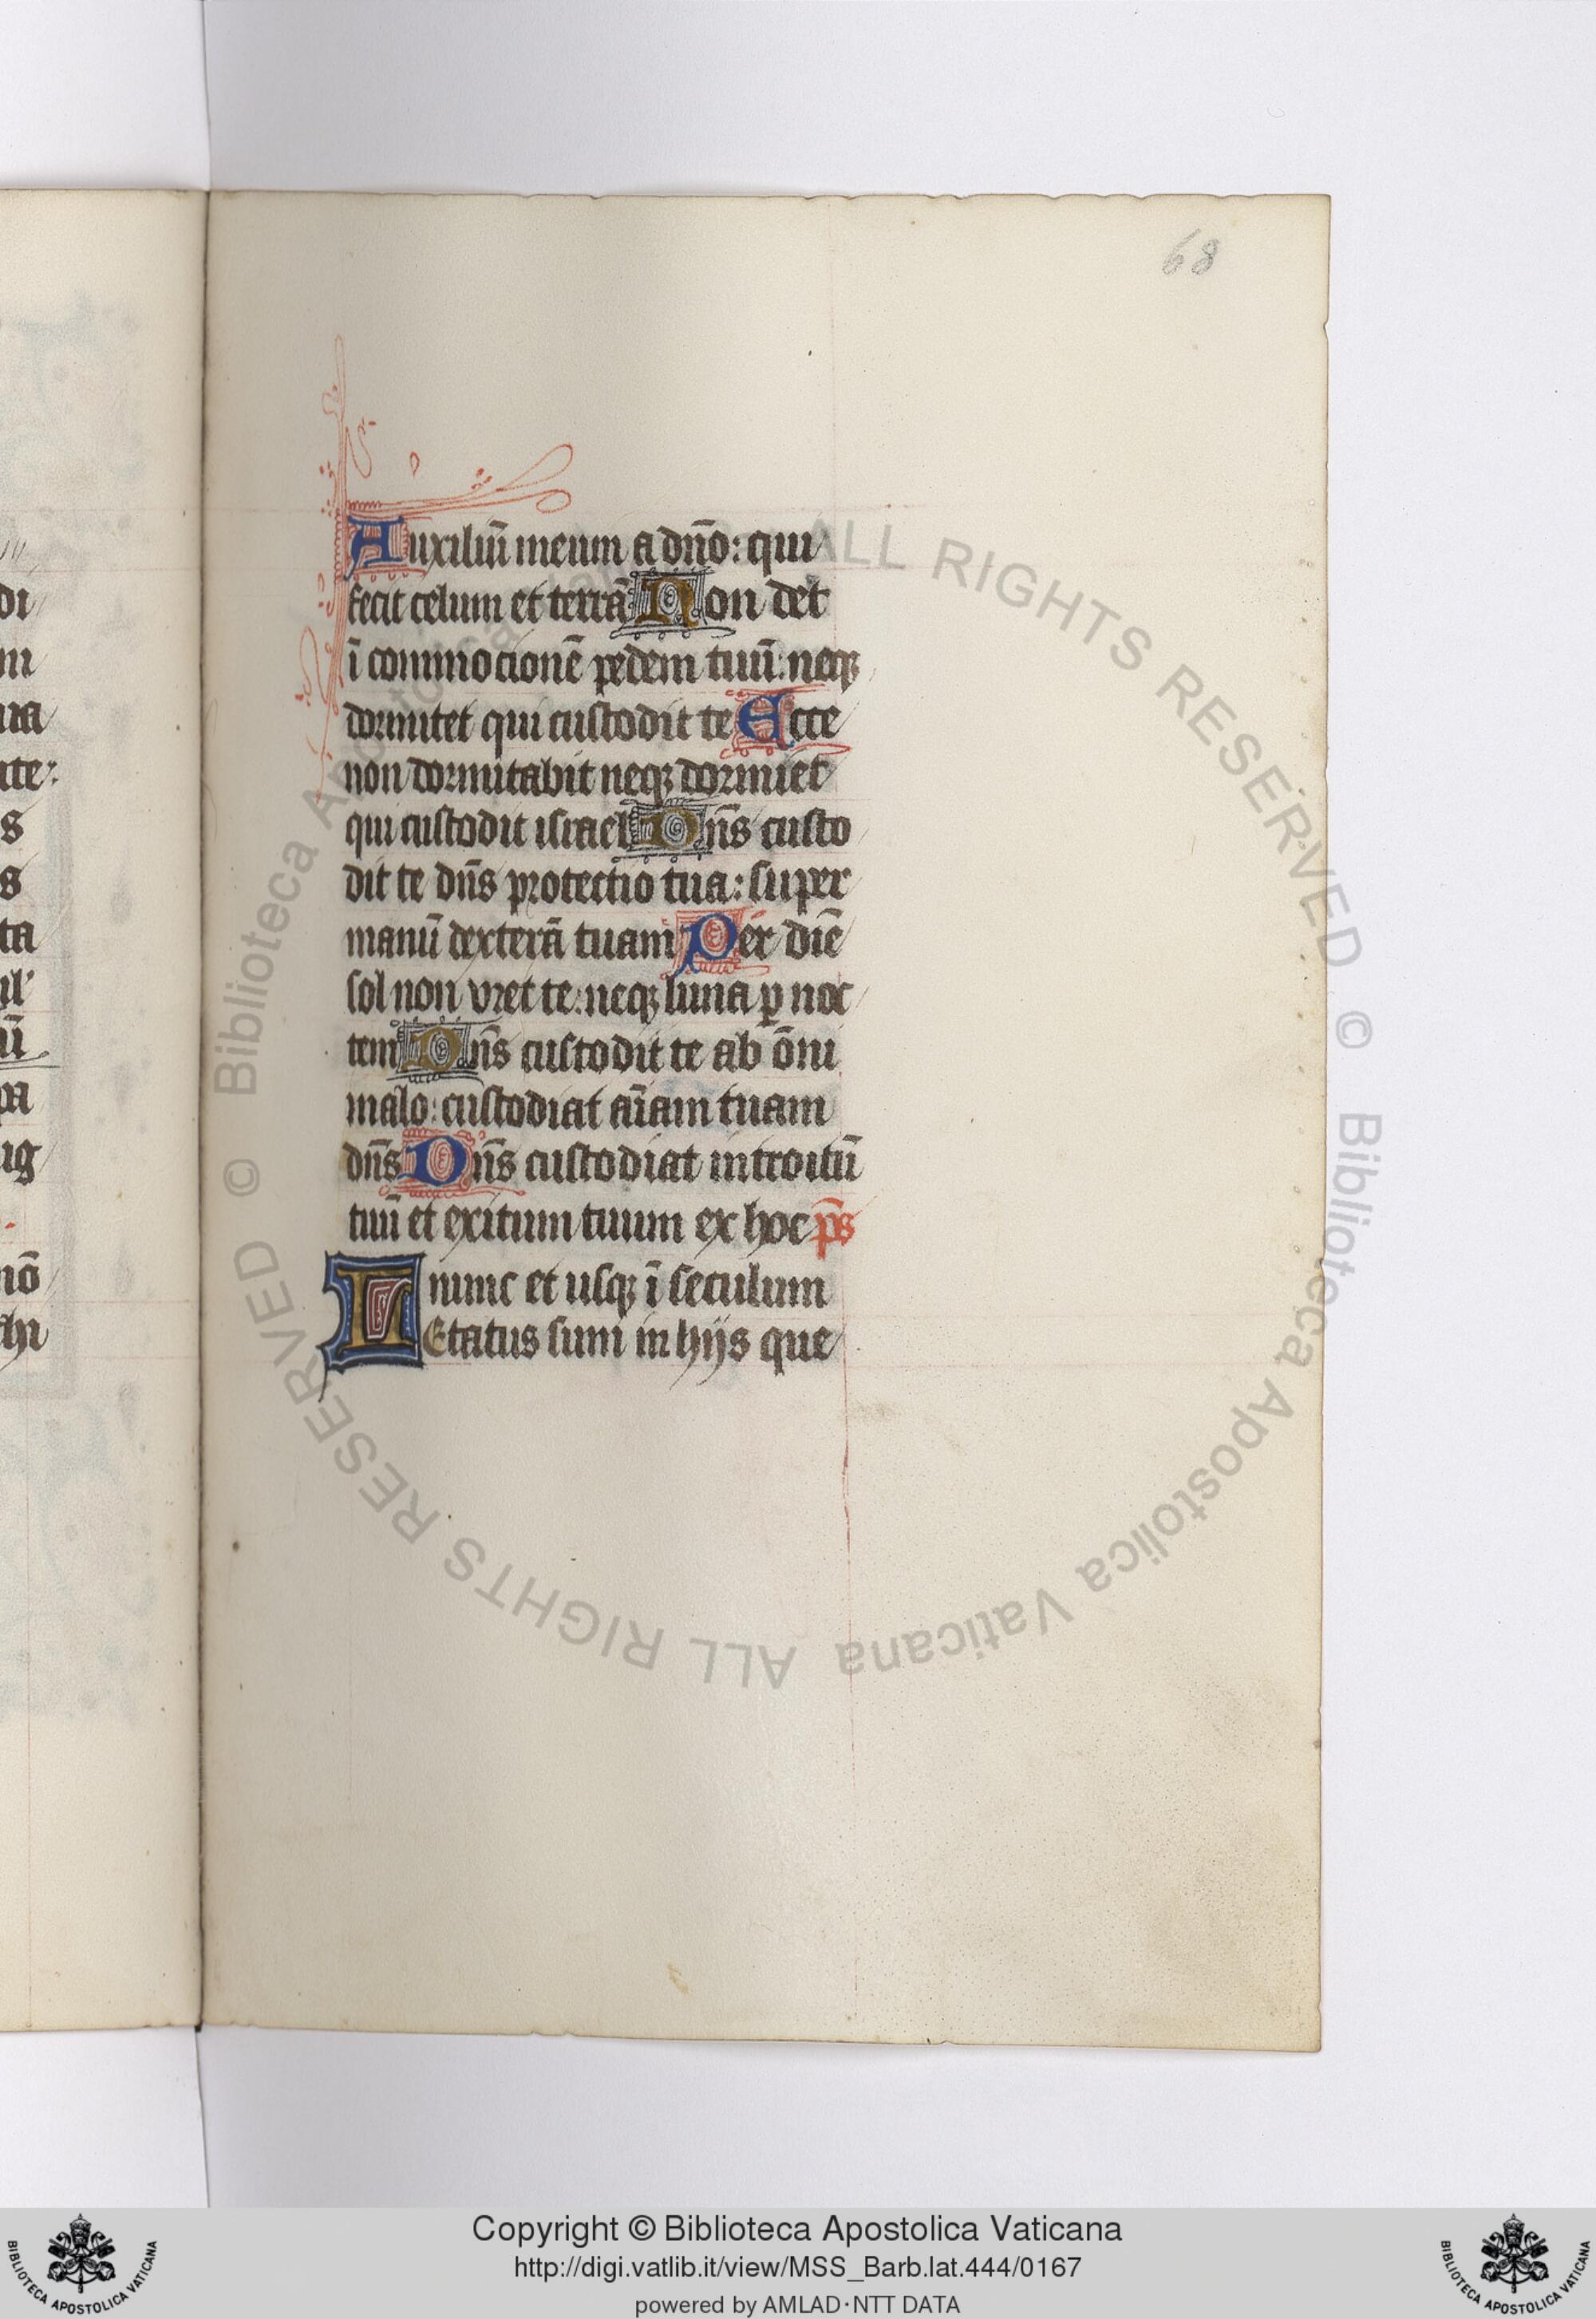 68
Auxiliū meum a dn̄o: qui
fecit celum et terrā Non det
ī commocionē pedem tuū: neqꝫ
dormitet qui custodit te Ecce
non dormitabit neqꝫ dormiet
qui custodit israel Dn̄s custo
dit te dn̄s protectio tua: super
manū dexterā tuam Per diē
sol non vret te: neqꝫ luna ꝑ noc
tem Dn̄s custodit te ab ōni
malo: custodiat aīam tuam
dn̄s Dn̄s custodiat introitū
tuū et exitum tuum ex hoc p̄s
nunc et usqꝫ ī seculum
LEtatus sum in hijs que
ALL RIGHTS RESERVED © Biblioteca Apostolica Vaticana
ALL RIGHTS RESERVED © Biblioteca Apostolica Vaticana
Copyright © Biblioteca Apostolica Vaticana
http://digi.vatlib.it/view/MSS_Barb.lat.444/0167
powered by AMLAD·NTT DATA
BIBLIOTECA APOSTOLICA VATICANA
BIBLIOTECA APOSTOLICA VATICANA